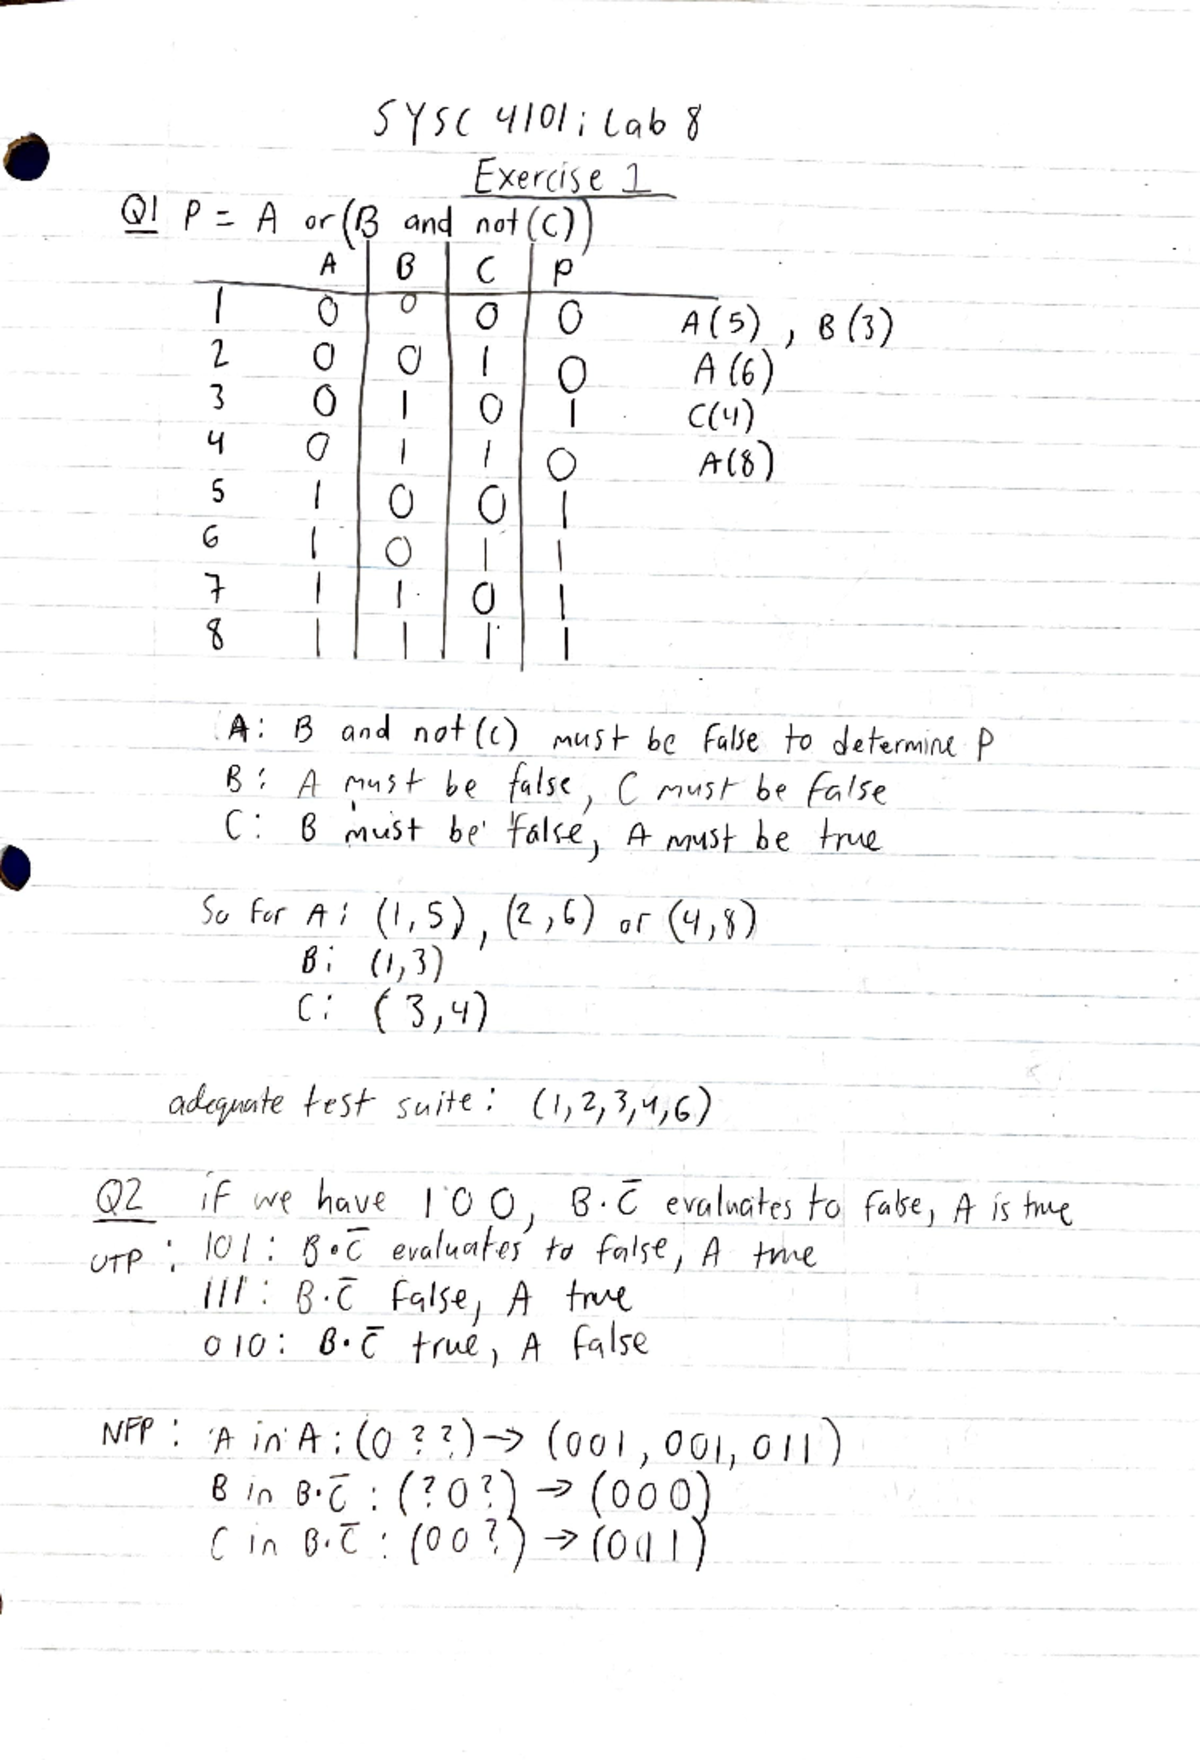 SYSC 4101: Lab 8
Exercise 1
Q1 P = A or (B and not(C))
A B C P
1 0 0 0 0 A(5), B(3)
2 0 0 1 0 A(6)
3 0 1 0 1 C(4)
4 0 1 1 0 A(8)
5 1 0 0 1
6 1 0 1 1
7 1 1 0 1
8 1 1 1 1
A: B and not(C) must be false to determine P
B: A must be false, C must be false
C: B must be false, A must be true
So for A: (1,5), (2,6) or (4,8)
B: (1,3)
C: (3,4)
adequate test suite: (1,2,3,4,6)
Q2 if we have 100, B·C̅ evaluates to false, A is true
UTP: 101: B·C̅ evaluates to false, A true
111: B·C̅ false, A true
010: B·C̅ true, A false
NFP: A in A: (0??) → (001, 001, 011)
B in B·C̅: (?0?) → (000)
C in B·C̅: (00?) → (011)